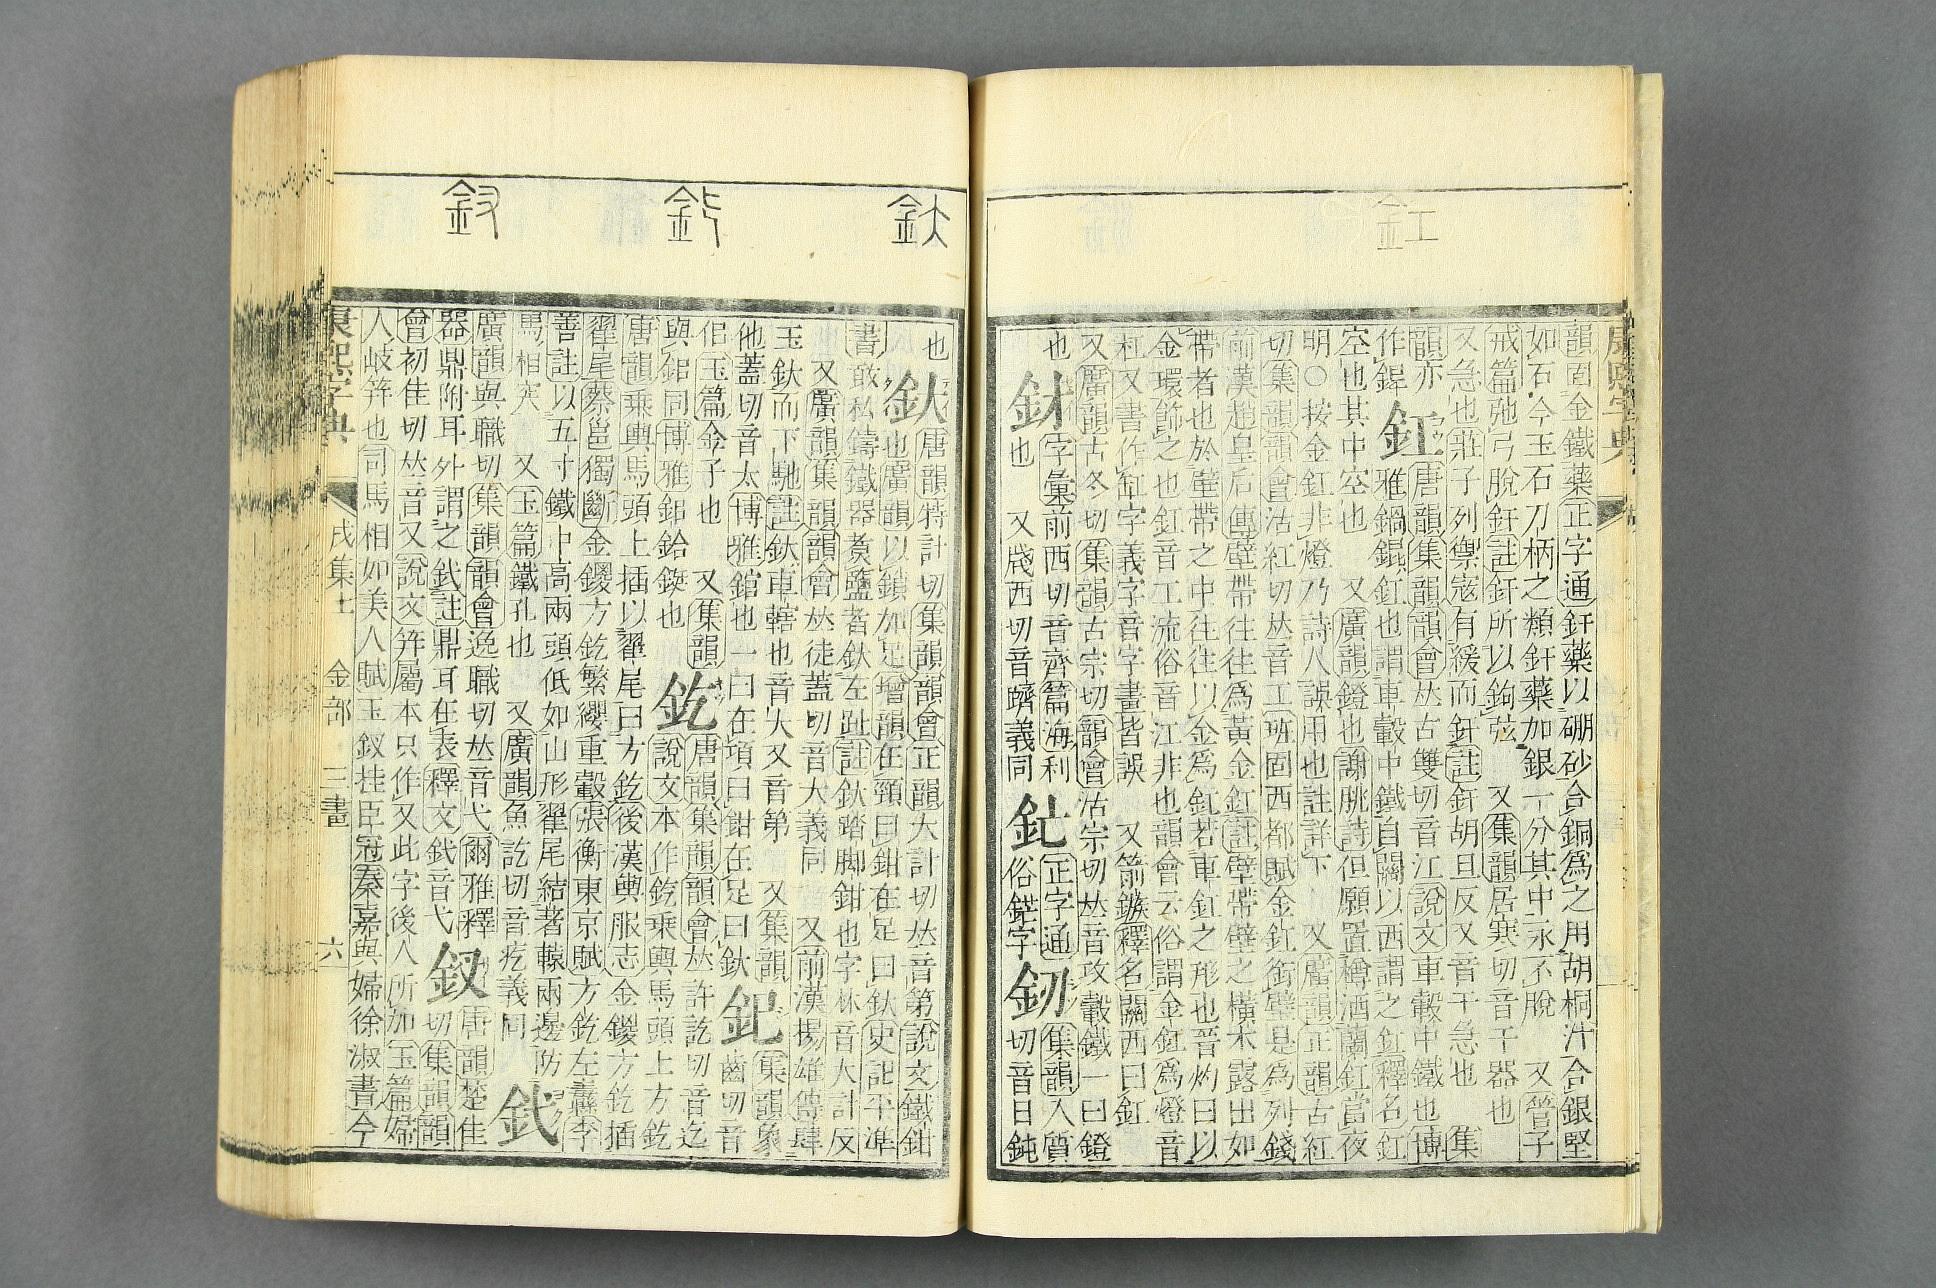 釭
康熙字典
韻固金鐵藥正字通釬藥以硼砂合銅爲之用胡桐汁合銀堅
如石今玉石刀柄之類釬藥加銀一分其中永不脫　又管子
戒篇弛弓脫釬註釬所以鉤弦　又集韻居寒切音干器也
又急也莊子列禦寇有緩而釬註釬胡旦反又音干急也　集
韻亦作銲　釭　唐韻集韻韻會𠀤古雙切音江說文車轂中鐵也博
雅鍋錕釭也謂車轂中鐵自關以西謂之釭釋名釭
空也其中空也　又廣韻鐙也謝朓詩但願置樽酒蘭釭當夜
明○按金釭非燈乃詩人誤用也註詳下　又廣韻正韻古紅
切集韻韻會沽紅切𠀤音工班固西都賦金釭銜璧是爲列錢
前漢趙皇后傳壁帶往往爲黃金釭註壁帶壁之橫木露出如
帶者也於壁帶之中往往以金爲釭若車釭之形也晉灼曰以
金環飾之也釭音工流俗音江非也韻會云俗謂金釭爲燈音
杠又書作缸字義字音字畫皆誤　又箭鏃釋名關西曰釭
又廣韻古冬切集韻古宗切韻會沽宗切𠀤音攻轂鐵一曰鐙
也　釮　字彙前西切音齊篇海利
也　又牋西切音躋義同
釯　正字通俗鋩字
釰　集韻入質切音日鈍
釱
釳
釵
也　釱　唐韻特計切集韻韻會正韻大計切𠀤音第說文鐵鉗
也廣韻以鎖加足增韻在頸曰鉗在足曰釱史記平準
書敢私鑄鐵器煮鹽者釱左趾註釱踏脚鉗也字林音大計反
又廣韻集韻韻會𠀤徒蓋切音大義同　又前漢揚雄傳肆
玉釱而下馳註釱車轄也音大又音第　又集韻
他蓋切音太博雅錧也一曰在項曰鉗在足曰釱
釲　集韻象齒切音
佀玉篇金子也　又集韻
與鉊同博雅鉊鉿也
釳　唐韻集韻韻會𠀤許訖切音迄
說文本作釳乘輿馬頭上方釳
唐韻乘輿馬頭上插以翟尾曰方釳後漢輿服志金鍐方釳插
翟尾蔡邕獨斷金鍐方釳繁纓重轂張衡東京賦方釳左纛李
善註以五寸鐵中高兩頭低如山形翟尾結著轅兩邊防
馬相突　又玉篇鐵孔也　又廣韻魚訖切音疙義同
釴
廣韻與職切集韻韻會逸職切𠀤音弋爾雅釋
器鼎附耳外謂之釴註鼎耳在表釋文釴音弋
釵　唐韻楚佳切集韻韻
會初佳切𠀤音叉說文笄屬本只作叉此字後人所加玉篇婦
人岐笄也司馬相如美人賦玉釵挂臣冠秦嘉與婦徐淑書今
康熙字典　戌集上　金部　三畫　六